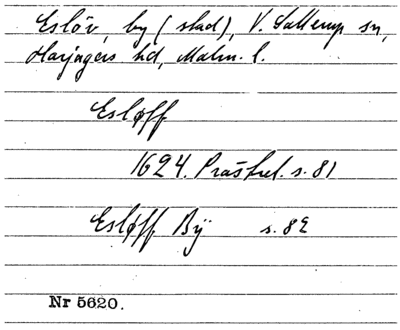 Eslöv, by (stad), V. Sallerup sn,
Harjagers hd, Malm. l.
Esløff
1624. Präs͠trel. s. 81
Esløff Bÿ s. 82
Nr 5620.